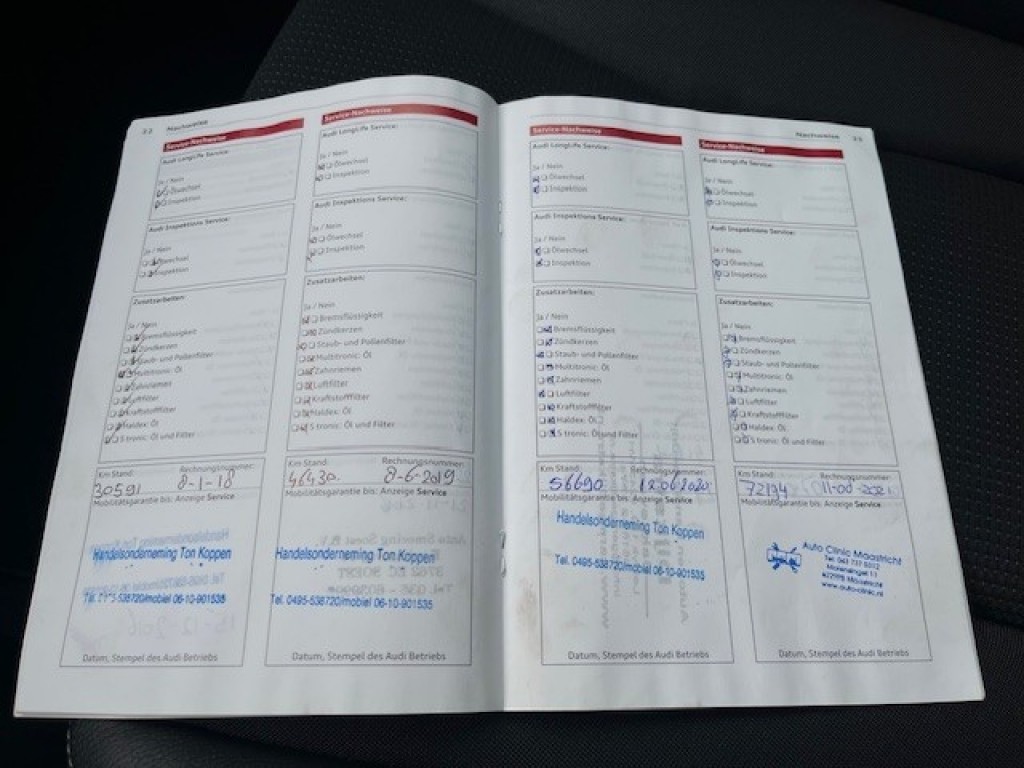 22 Nachweise
Service-Nachweise
Audi LongLife Service:
Ja / Nein
Ölwechsel
Inspektion
Audi Inspektions Service:
Ja / Nein
Ölwechsel
Inspektion
Zusatzarbeiten:
Ja / Nein
Bremsflüssigkeit
Zündkerzen
Staub- und Pollenfilter
Multitronic: Öl
Zahnriemen
Luftfilter
Kraftstofffilter
Haldex: Öl
S tronic: Öl und Filter
Km Stand: Rechnungsnummer:
30591 8-1-18
Mobilitätsgarantie bis: Anzeige Service
Handelsonderneming Ton Koppen
Tel. 0495-538720/mobiel 06-10-901535
Datum, Stempel des Audi Betriebs
Service-Nachweise
Audi LongLife Service:
Ja / Nein
Ölwechsel
Inspektion
Audi Inspektions Service:
Ja / Nein
Ölwechsel
Inspektion
Zusatzarbeiten:
Ja / Nein
Bremsflüssigkeit
Zündkerzen
Staub- und Pollenfilter
Multitronic: Öl
Zahnriemen
Luftfilter
Kraftstofffilter
Haldex: Öl
S tronic: Öl und Filter
Km Stand: Rechnungsnummer:
46430. 8-6-2019
Mobilitätsgarantie bis: Anzeige Service
Handelsonderneming Ton Koppen
Tel. 0495-538720/mobiel 06-10-901535
Datum, Stempel des Audi Betriebs
Nachweise 23
Service-Nachweise
Audi LongLife Service:
Ja / Nein
Ölwechsel
Inspektion
Audi Inspektions Service:
Ja / Nein
Ölwechsel
Inspektion
Zusatzarbeiten:
Ja / Nein
Bremsflüssigkeit
Zündkerzen
Staub- und Pollenfilter
Multitronic: Öl
Zahnriemen
Luftfilter
Kraftstofffilter
Haldex: Öl
S tronic: Öl und Filter
Km Stand: Rechnungsnummer:
56690 12.06.2020
Mobilitätsgarantie bis: Anzeige Service
Handelsonderneming Ton Koppen
Tel. 0495-538720/mobiel 06-10-901535
Datum, Stempel des Audi Betriebs
Service-Nachweise
Audi LongLife Service:
Ja / Nein
Ölwechsel
Inspektion
Audi Inspektions Service:
Ja / Nein
Ölwechsel
Inspektion
Zusatzarbeiten:
Ja / Nein
Bremsflüssigkeit
Zündkerzen
Staub- und Pollenfilter
Multitronic: Öl
Zahnriemen
Luftfilter
Kraftstofffilter
Haldex: Öl
S tronic: Öl und Filter
Km Stand: Rechnungsnummer:
72194
Mobilitätsgarantie bis: Anzeige Service
Auto Clinic Maastricht
Maastricht
www.auto-clinic.nl
Datum, Stempel des Audi Betriebs